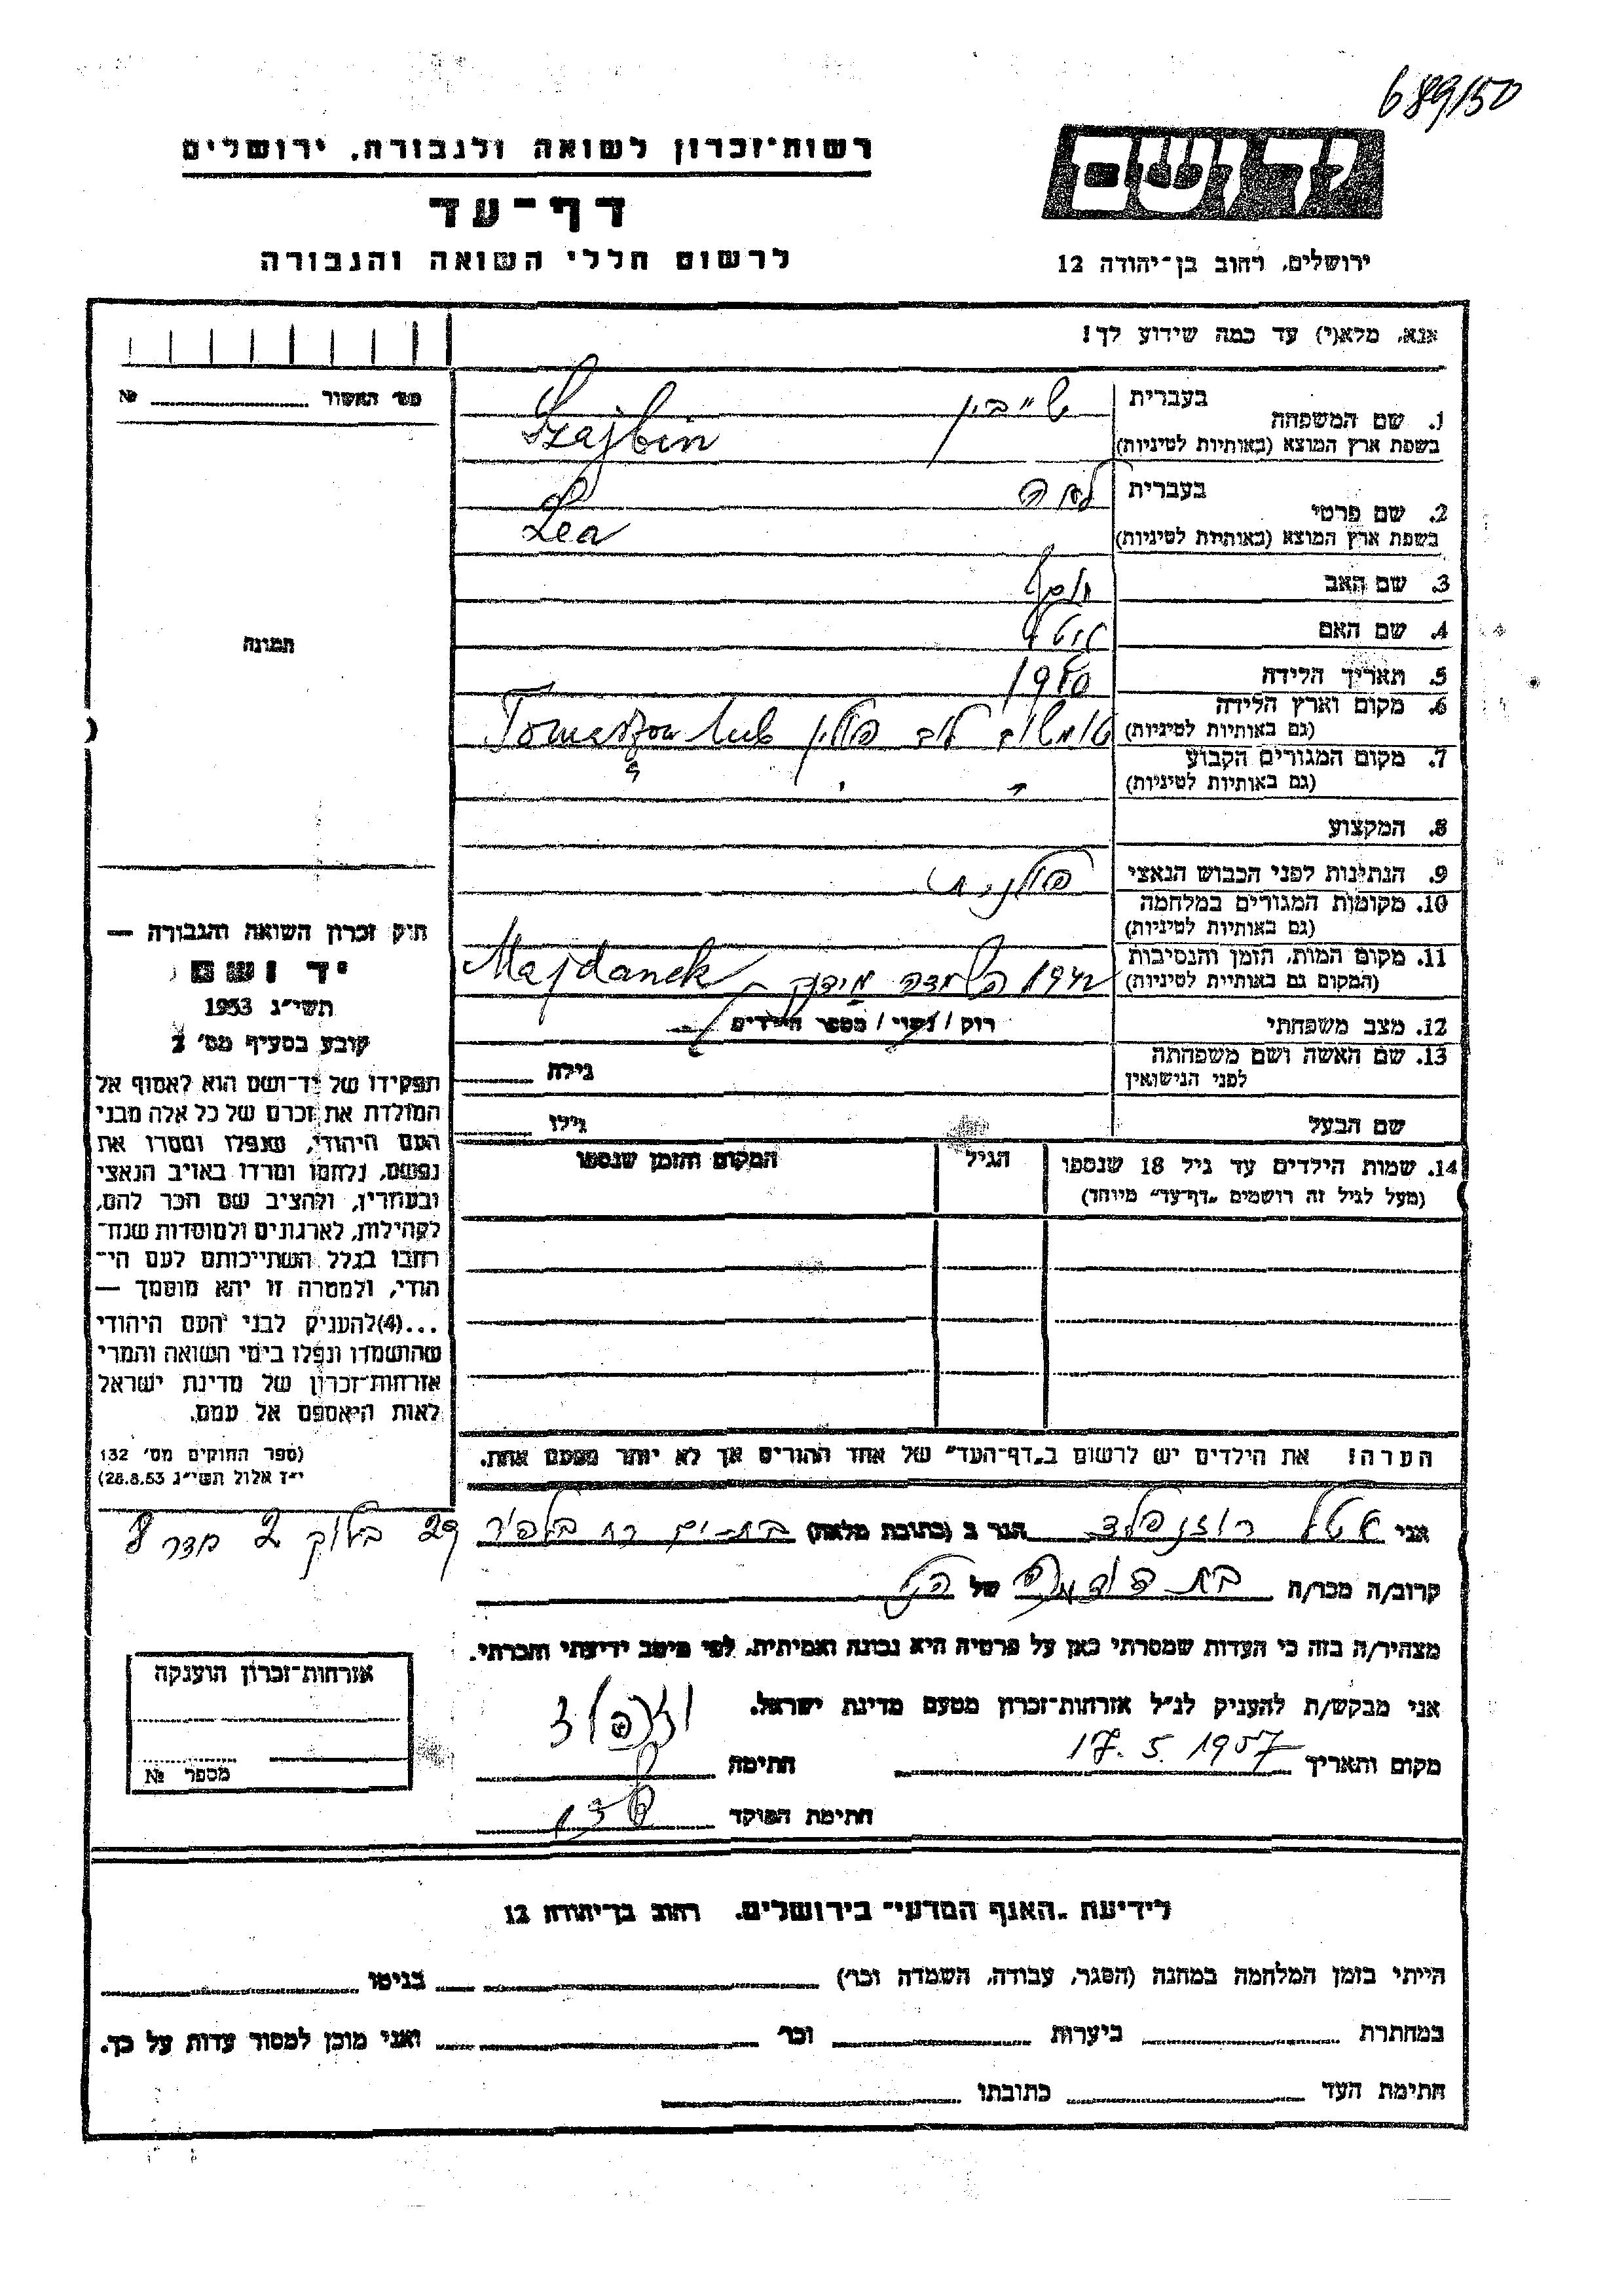 689/50
רשות-זכרון לשואה ולגבורה, ירושלים
יד ושם
דף-עד
לרשום חללי השואה והגבורה
ירושלים, רחוב בן-יהודה 12
אנא, מלא(י) עד כמה שידוע לך!
מס' האשור №
1. שם המשפחה בעברית שייבין
בשפת ארץ המוצא (באותיות לטיניות) Szajbin
2. שם פרטי בעברית לאה
בשפת ארץ המוצא (באותיות לטיניות) Lea
3. שם האב
4. שם האם
5. תאריך הלידה
6. מקום וארץ הלידה
(גם באותיות לטיניות) טומשוב לוב פולין Tomaszow Lub
7. מקום המגורים הקבוע
(גם באותיות לטיניות)
8. המקצוע
9. הנתינות לפני הכבוש הנאצי פולנית
10. מקומות המגורים במלחמה
(גם באותיות לטיניות)
11. מקום המות, הזמן והנסיבות
(המקום גם באותיות לטיניות) 1942 השמדה מידנק Majdanek
12. מצב משפחתי רוק / נשוי / מספר הילדים
13. שם האשה ושם משפחתה
לפני הנישואין גילה
שם הבעל גילו
14. שמות הילדים עד גיל 18 שנספו הגיל המקום והזמן שנספו
(מעל לגיל זה רושמים "דף-עד" מיוחד)
תמונה
חוק זכרון השואה והגבורה —
יד ושם
תשי"ג 1953
קובע בסעיף מס' 2
תפקידו של יד-ושם הוא לאסוף אל
המולדת את זכרם של כל אלה מבני
העם היהודי, שנפלו ומסרו את
נפשם, נלחמו ומרדו באויב הנאצי
ובעוזריו, ולהציב שם וזכר להם,
לקהילות, לארגונים ולמוסדות שנח־
רבו בגלל השתייכותם לעם הי־
הודי, ולמטרה זו יהא מוסמך —
...(4)להעניק לבני העם היהודי
שהושמדו ונפלו בימי השואה והמרי
אזרחות-זכרון של מדינת ישראל
לאות היאספם אל עמם.
(ספר החוקים מס' 132
י"ז אלול תשי"ג 28.8.53)
הערה! את הילדים יש לרשום ב"דף-העד" של אחד ההורים אך לא יותר מפעם אחת.
אני אטל רוזנפלד הגר ב (כתובת מלאה) בת-ים רח בלפור 29 בלוק 2 חדר 8
קרוב/ה מכר/ה בת הודה של הנ"ל
מצהיר/ה בזה כי העדות שמסרתי כאן על פרטיה היא נכונה ואמיתית, לפי מיטב ידיעתי והכרתי.
אני מבקש/ת להעניק לנ"ל אזרחות-זכרון מטעם מדינת ישראל.
מקום ותאריך 17.5.1957 חתימה
חתימת הפוקד
אזרחות-זכרון הוענקה
מספר №
לידיעת "האגף המדעי" בירושלים, רחוב בן-יהודה 12
הייתי בזמן המלחמה במחנה (הסגר, עבודה, השמדה וכו') בגיטו
במחתרת ביערות וכו' ואני מוכן למסור עדות על כך.
חתימת העד כתובתו